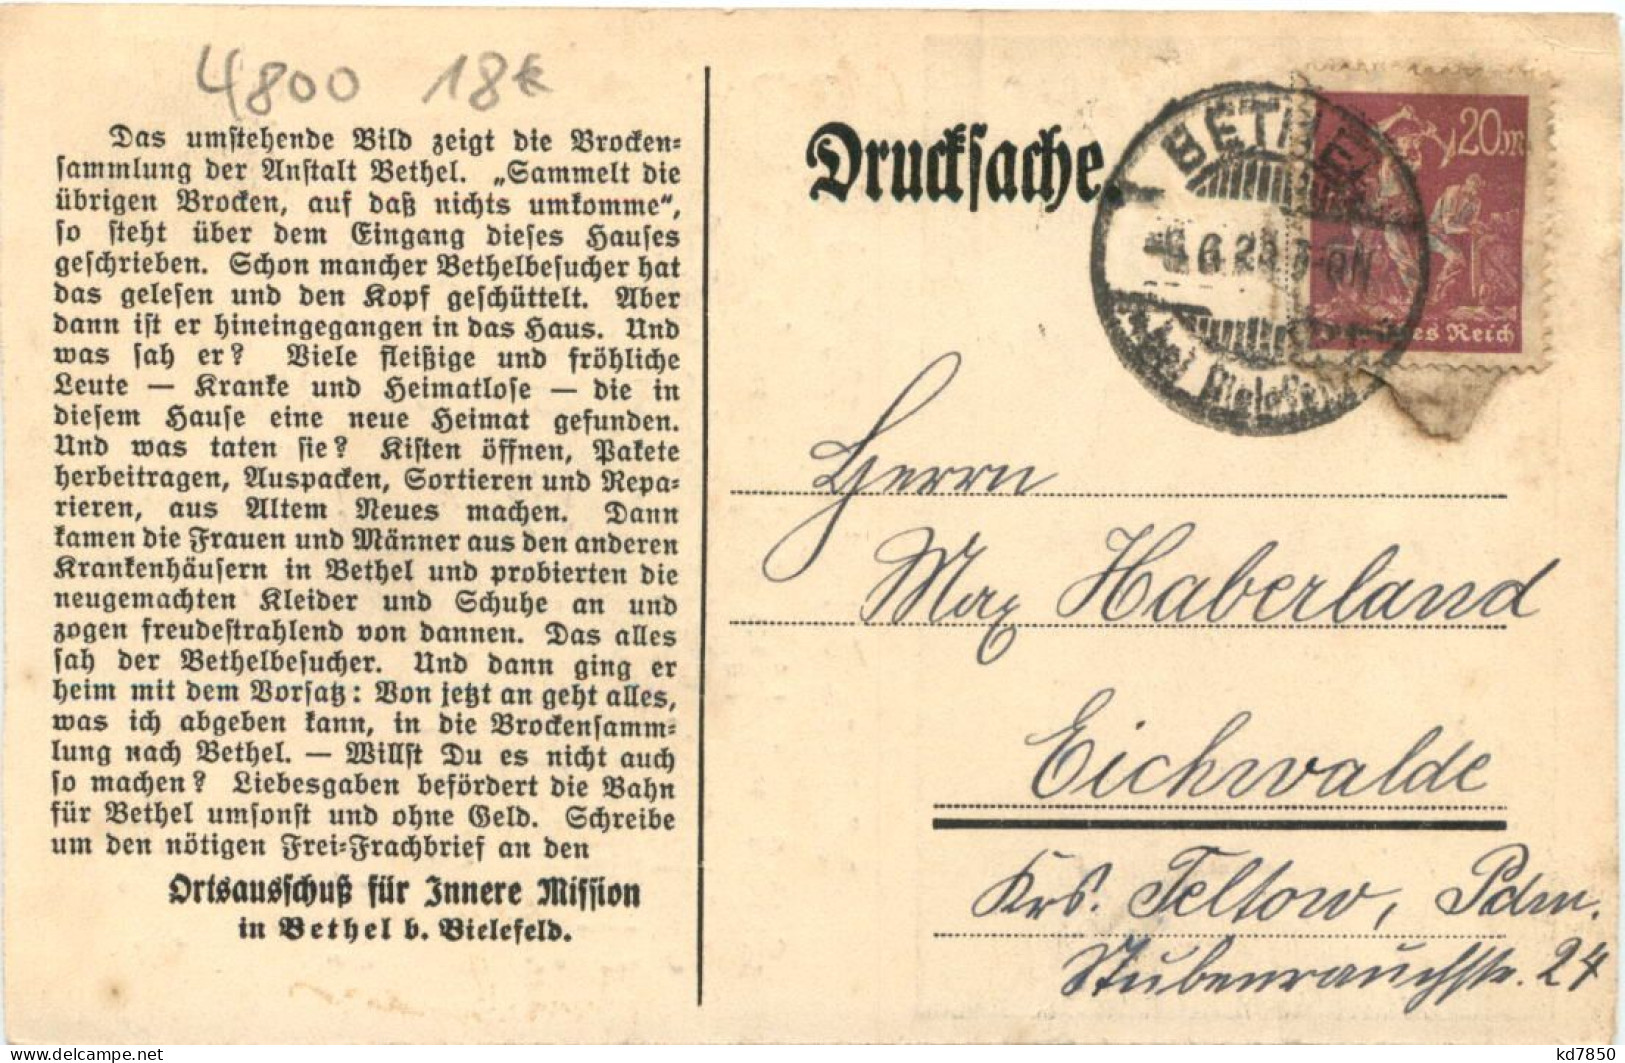 4800 18€
Das umstehende Bild zeigt die Brocken-
sammlung der Anstalt Bethel. „Sammelt die
übrigen Brocken, auf daß nichts umkomme“,
so steht über dem Eingang dieses Hauses
geschrieben. Schon mancher Bethelbesucher hat
das gelesen und den Kopf geschüttelt. Aber
dann ist er hineingegangen in das Haus. Und
was sah er? Viele fleißige und fröhliche
Leute — Kranke und Heimatlose — die in
diesem Hause eine neue Heimat gefunden.
Und was taten sie? Kisten öffnen, Pakete
herbeitragen, Auspacken, Sortieren und Repa-
rieren, aus Altem Neues machen. Dann
kamen die Frauen und Männer aus den anderen
Krankenhäusern in Bethel und probierten die
neugemachten Kleider und Schuhe an und
zogen freudestrahlend von dannen. Das alles
sah der Bethelbesucher. Und dann ging er
heim mit dem Vorsatz: Von jetzt an geht alles,
was ich abgeben kann, in die Brockensamm-
lung nach Bethel. — Willst Du es nicht auch
so machen? Liebesgaben befördert die Bahn
für Bethel umsonst und ohne Geld. Schreibe
um den nötigen Frei-Frachbrief an den
Ortsausschuß für Innere Mission
in Bethel b. Bielefeld.
Drucksache.
BETHEL
bei Bielefeld
20m
Deutsches Reich
Herrn
Max Haberland
Eichwalde
Krs. Teltow, Pdm.
Stubenrauchstr. 24
delcampe.net
kd7850